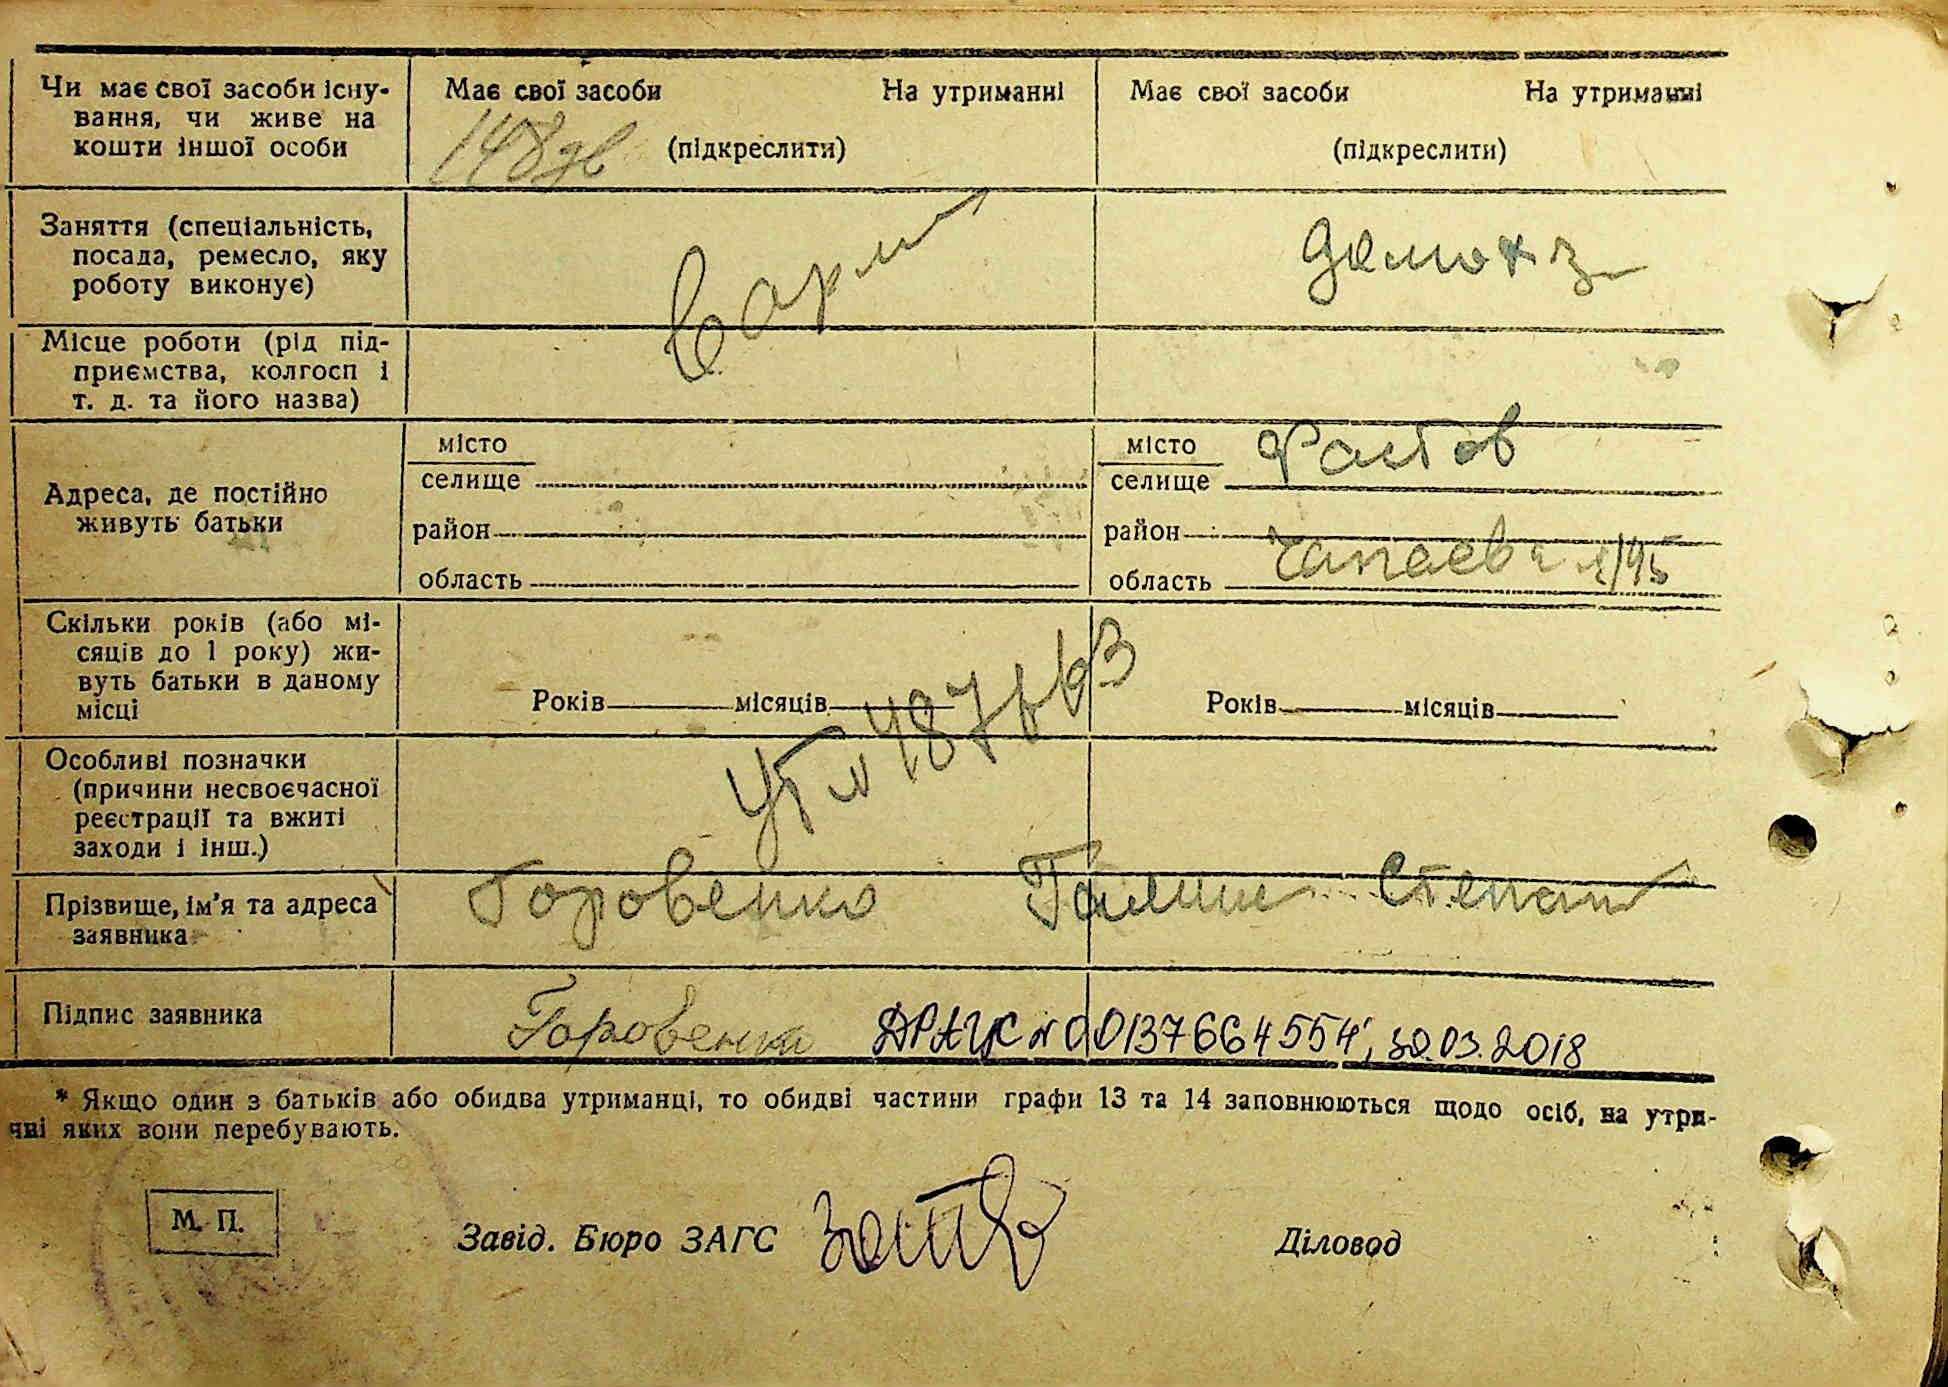 Чи має свої засоби існу-
вання, чи живе на
кошти іншої особи
Має свої засоби На утриманні
148 дв (підкреслити)
Має свої засоби На утриманні
(підкреслити)
Заняття (спеціальність,
посада, ремесло, яку
роботу виконує)
в арми
домохоз
Місце роботи (рід під-
приємства, колгосп і
т. д. та його назва)
Адреса, де постійно
живуть батьки
місто
селище
район
область
місто Фастов
селище
район
область Чапаева 1/95
Скільки років (або мі-
сяців до 1 року) жи-
вуть батьки в даному
місці
Років місяців
Років місяців
Особливі позначки
(причини несвоєчасної
реєстрації та вжиті
заходи і інш.)
Прізвище, ім'я та адреса
заявника
Горовенко Галине Степан
Підпис заявника
Горовенко ДРАЦС № 00137664554, 30.03.2018
* Якщо один з батьків або обидва утриманці, то обидві частини графи 13 та 14 заповнюються щодо осіб, на утри-
нні яких вони перебувають.
М. П.
Завід. Бюро ЗАГС
Діловод